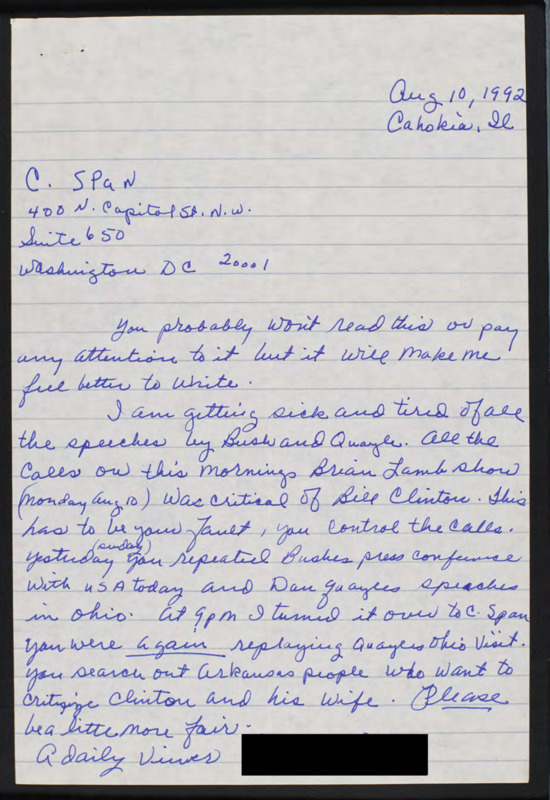 Aug 10, 1992
Cahokia, Il
C. SPaN
400 N. Capitol St. N.W.
Suite 650
Washington DC 20001
You probably won't read this or pay
any attention to it but it will make me
feel better to write.
I am getting sick and tired of all
the speeches by Bush and Quayle. All the
Calls on this mornings Brian Lamb show
(Monday Aug 10) was critical of Bill Clinton. This
has to be your fault, you control the calls.
Yesterday (sunday) you repeated Bushes press confrence
with USA today and Dan Quayles speaches
in Ohio. At 9pm I turned it over to C. Span
you were again replaying Quayles Ohio Visit.
You search out Arkansas people who want to
critisize Clinton and his wife. Please
be a little more fair.
A daily Viewer